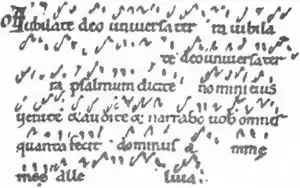 Iubilate deo universa ter ra iubila
te deo universa ter
ra psalmum dicite nomini eius
venite & audite & narrabo vob omnis
quanta fecit dominus a nime
mee alle luia